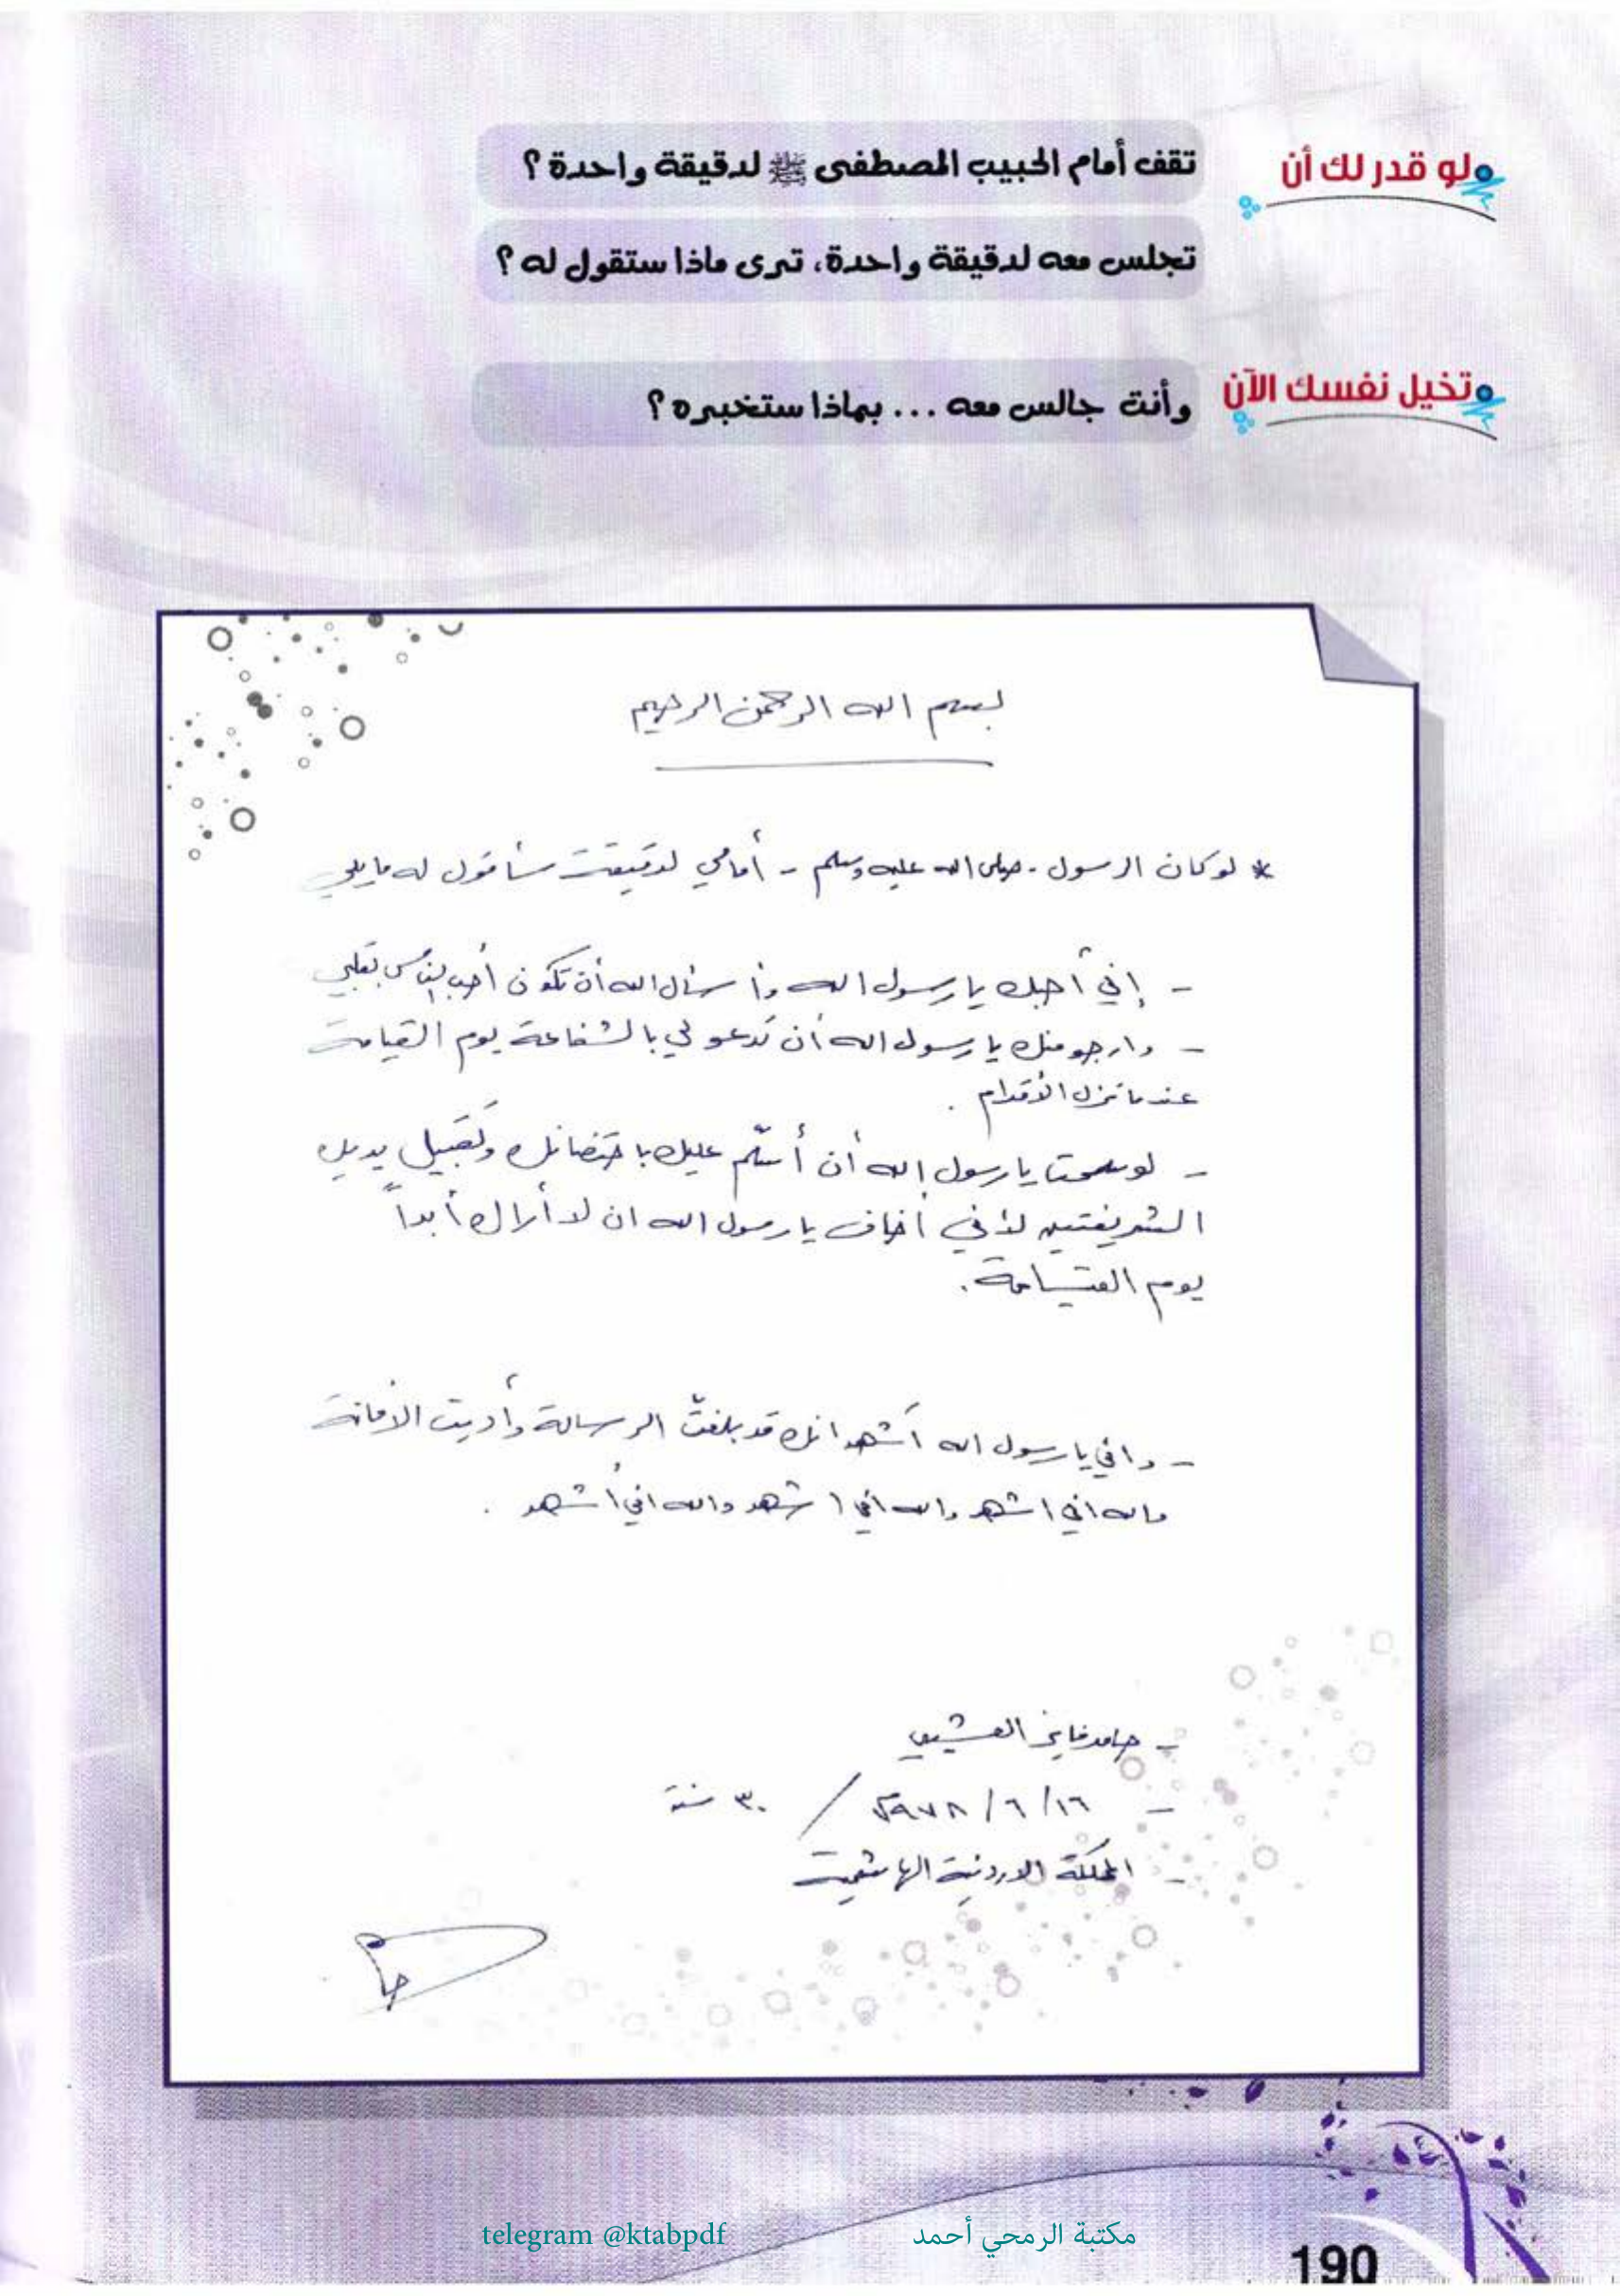 لو قدر لك أن
تقف أمام الحبيب المصطفى ﷺ لدقيقة واحدة ؟
تجلس معه لدقيقة واحدة، ترى ماذا ستقول له ؟
تخيل نفسك الآن
وأنت جالس معه ... بماذا ستخبره ؟
بسم الله الرحمن الرحيم
* لو كان الرسول - صلى الله عليه وسلم - أمامي لدقيقة سأقول له ما يلي
- إني أحبك يا رسول الله وأسأل الله أن تكون أحب الناس بقلبي
- وارجو منك يا رسول الله أن تدعو لي بالشفاعة يوم القيامة
عندما تزل الأقدام .
- لو سمحت يا رسول الله أن أسلّم عليك باحتضانك وتقبيل يديك
الشريفتين لأني أخاف يا رسول الله ان لا أراك أبداً
يوم القيامة .
- واني يا رسول الله أشهد انك قد بلغت الرسالة وأديت الأمانة
والله اني اشهد والله اني اشهد والله اني أشهد .
- حامد فايز
- ١٦ / ٦ / ١٩٧٨ / ٣٠ سنة
- المملكة الاردنية الهاشمية
telegram @ktabpdf مكتبة الرمحي أحمد
190